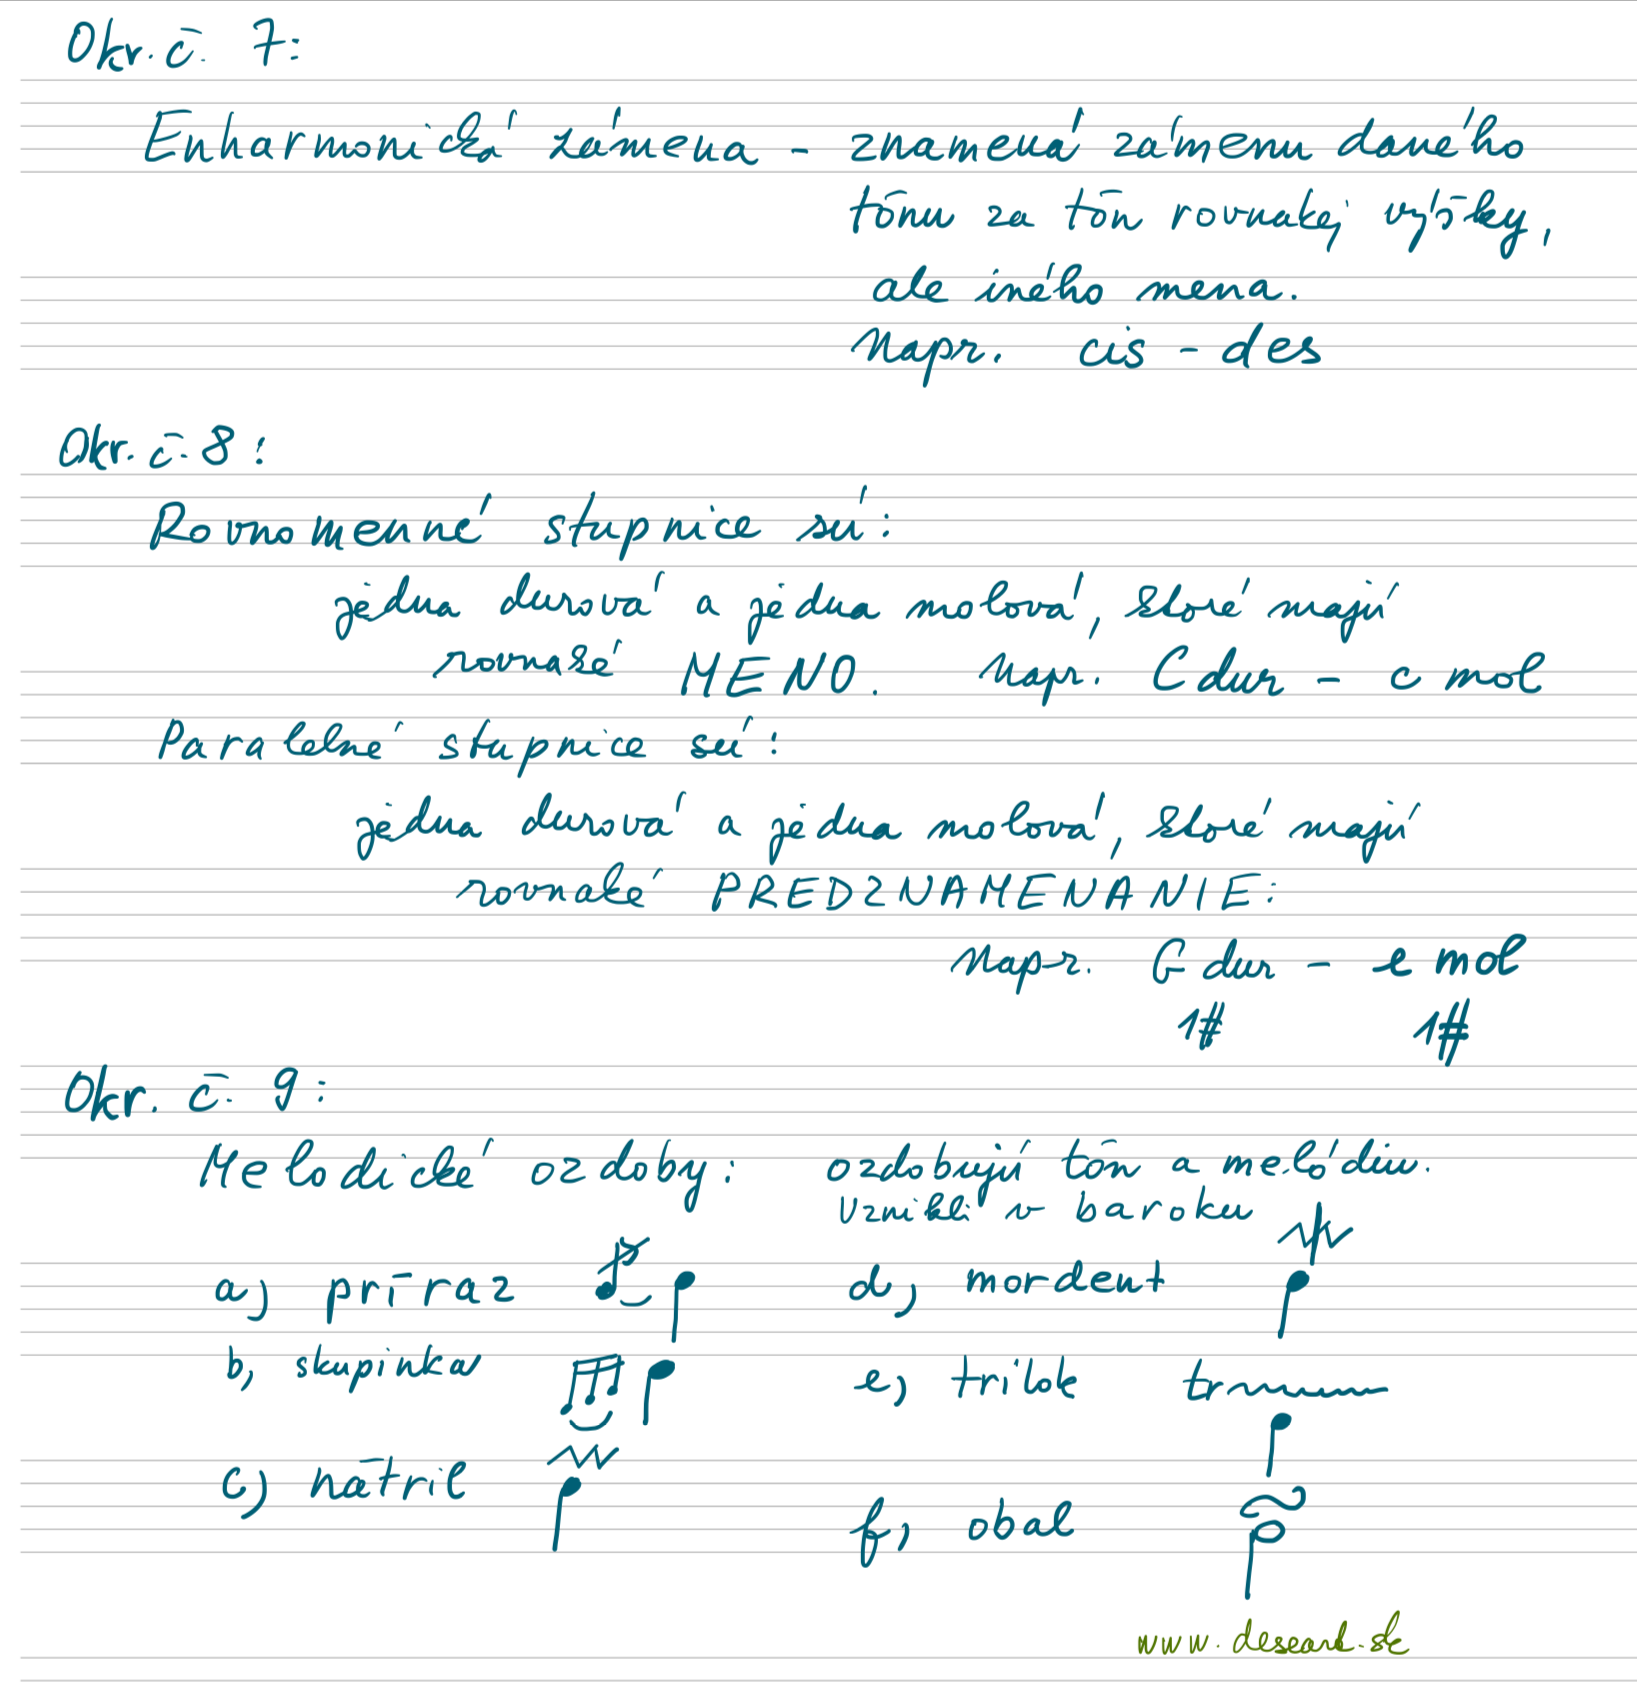 Okr. č. 7:
Enharmonická zámena - znamená zámenu daného
tónu za tón rovnakej výšky,
ale iného mena.
Napr. cis - des
Okr. č. 8:
Rovnomenné stupnice sú:
jedna durová a jedna molová, ktoré majú
rovnaké MENO. Napr. C dur - c mol
Paralelné stupnice sú:
jedna durová a jedna molová, ktoré majú
rovnaké PREDZNAMENANIE:
Napr. G dur - e mol
1# 1#
Okr. č. 9:
Melodické ozdoby: ozdobujú tón a melódiu.
Vznikli v baroku
a) príraz d, mordent
b, skupinka e) trilok tr
c) nátril
f, obal
www.deseark.sk